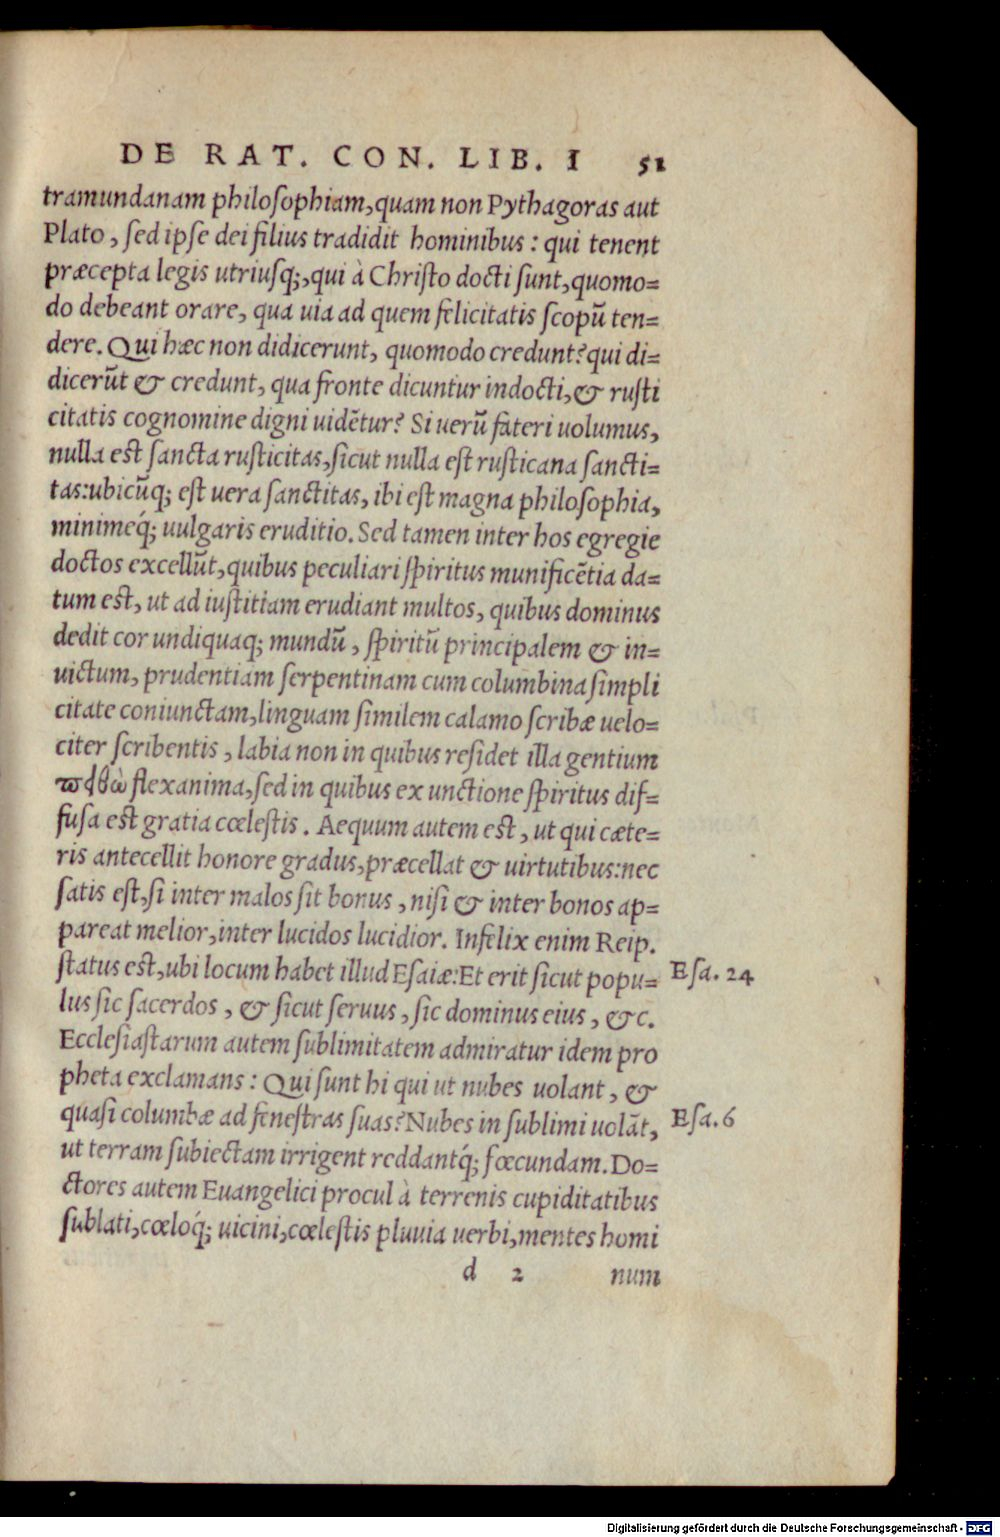 DE RAT. CON. LIB. I 51
tramundanam philoſophiam,quam non Pythagoras aut
Plato , ſed ipſe dei filius tradidit hominibus : qui tenent
præcepta legis utriuſq;,qui à Chriſto docti ſunt,quomo=
do debeant orare, qua uia ad quem felicitatis ſcopũ ten=
dere. Qui hæc non didicerunt, quomodo credunt?qui di=
dicerũt & credunt, qua fronte dicuntur indocti,& ruſti
citatis cognomine digni uidẽtur? Si uerũ fateri uolumus,
nulla eſt ſancta ruſticitas,ſicut nulla eſt ruſticana ſancti=
tas:ubicũq; eſt uera ſanctitas, ibi eſt magna philoſophia,
minimeq́; uulgaris eruditio. Sed tamen inter hos egregie
doctos excellũt,quibus peculiari ſpiritus munificẽtia da=
tum eſt, ut ad iuſtitiam erudiant multos, quibus dominus
dedit cor undiquaq; mundũ , ſpiritũ principalem & in=
uictum, prudentiam ſerpentinam cum columbina ſimpli
citate coniunctam,linguam ſimilem calamo ſcribæ uelo=
citer ſcribentis , labia non in quibus reſidet illa gentium
ϖειθὼ flexanima,ſed in quibus ex unctione ſpiritus dif=
fuſa eſt gratia cœleſtis . Aequum autem eſt, ut qui cæte=
ris antecellit honore gradus,præcellat & uirtutibus:nec
ſatis eſt,ſi inter malos ſit bonus , niſi & inter bonos ap=
pareat melior,inter lucidos lucidior. Infelix enim Reip.
ſtatus eſt,ubi locum habet illud Eſaiæ:Et erit ſicut popu= Eſa. 24
lus ſic ſacerdos , & ſicut ſeruus , ſic dominus eius , &c.
Eccleſiaſtarum autem ſublimitatem admiratur idem pro
pheta exclamans : Qui ſunt hi qui ut nubes uolant , &
quaſi columbæ ad feneſtras ſuas?Nubes in ſublimi uolãt, Eſa. 6
ut terram ſubiectam irrigent reddantq́; fœcundam. Do=
ctores autem Euangelici procul à terrenis cupiditatibus
ſublati,cœloq́; uicini,cœleſtis pluuia uerbi,mentes homi
d 2 num
Digitalisierung gefördert durch die Deutsche Forschungsgemeinschaft - DFG